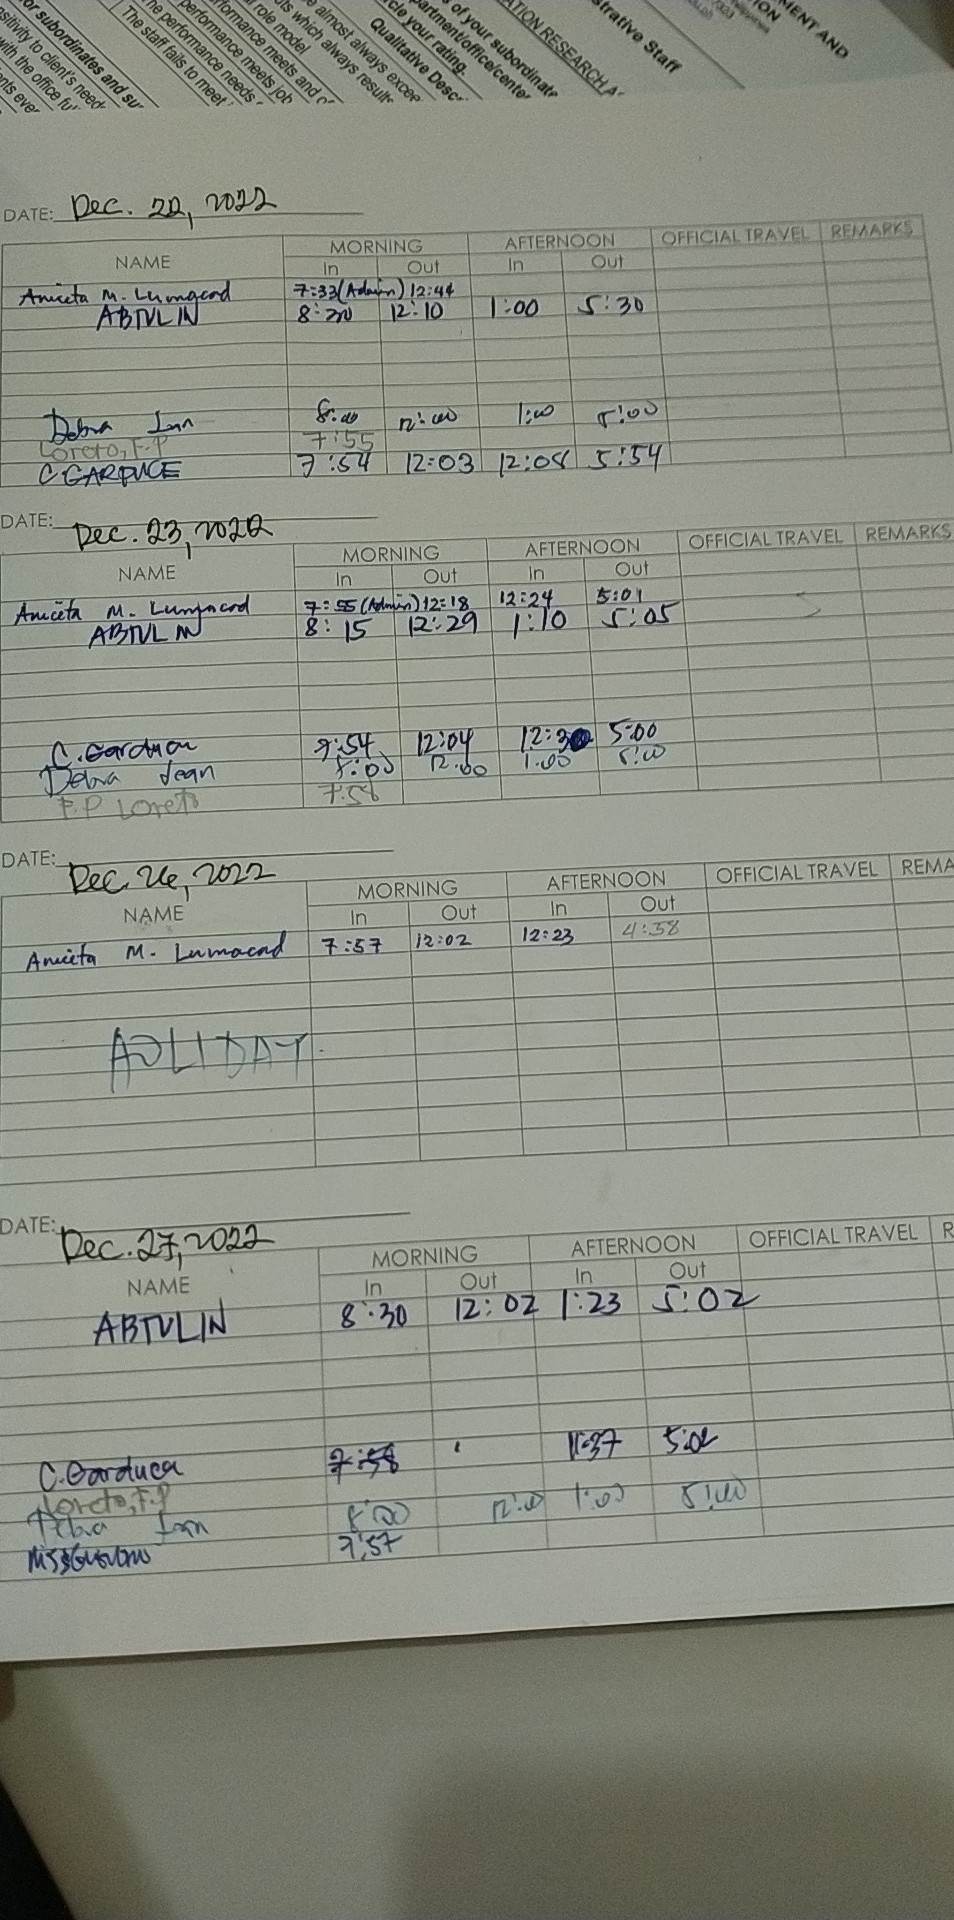 or subordinates and su
sitivity to client's need
with the office fu
nts ever
The staff fails to meet
he performance needs
performance meets job
formance meets and
role model
ts which always results
almost always excee
Qualitative Desc
cle your rating.
partment/office/cente
of your subordinate
ATION RESEARCH A
strative Staff
MENT AND
ION
DATE: Dec. 22, 2022
NAME MORNING AFTERNOON OFFICIAL TRAVEL REMARKS
In Out In Out
Aniceta M. Lumacad 7:33 (Admin) 12:44
ABTULIN 8:20 12:10 1:00 5:30
Debra Jean 8:00 12:00 1:00 5:00
Loreto, F.P 7:55
C GARDUCE 7:54 12:03 12:08 5:54
DATE: Dec. 23, 2022
NAME MORNING AFTERNOON OFFICIAL TRAVEL REMARKS
In Out In Out
Aniceta M. Lumacad 7:55 (Admin) 12:18 12:24 5:01
ABTULIN 8:15 12:29 1:10 5:05
C. Garduce 7:54 12:04 12:30 5:00
Debra Jean 8:00 12:00 1:00 5:00
F.P Loreto 7:58
DATE: Dec. 26, 2022
NAME MORNING AFTERNOON OFFICIAL TRAVEL REMA
In Out In Out
Aniceta M. Lumacad 7:57 12:02 12:23 4:58
HOLIDAY.
DATE: Dec. 27, 2022
NAME MORNING AFTERNOON OFFICIAL TRAVEL R
In Out In Out
ABTULIN 8:30 12:02 1:23 5:02
C. Garduce 7:58 5:02
Loreto, F.P
Debra Jean 8:00 12:00 1:00 5:00
7:57